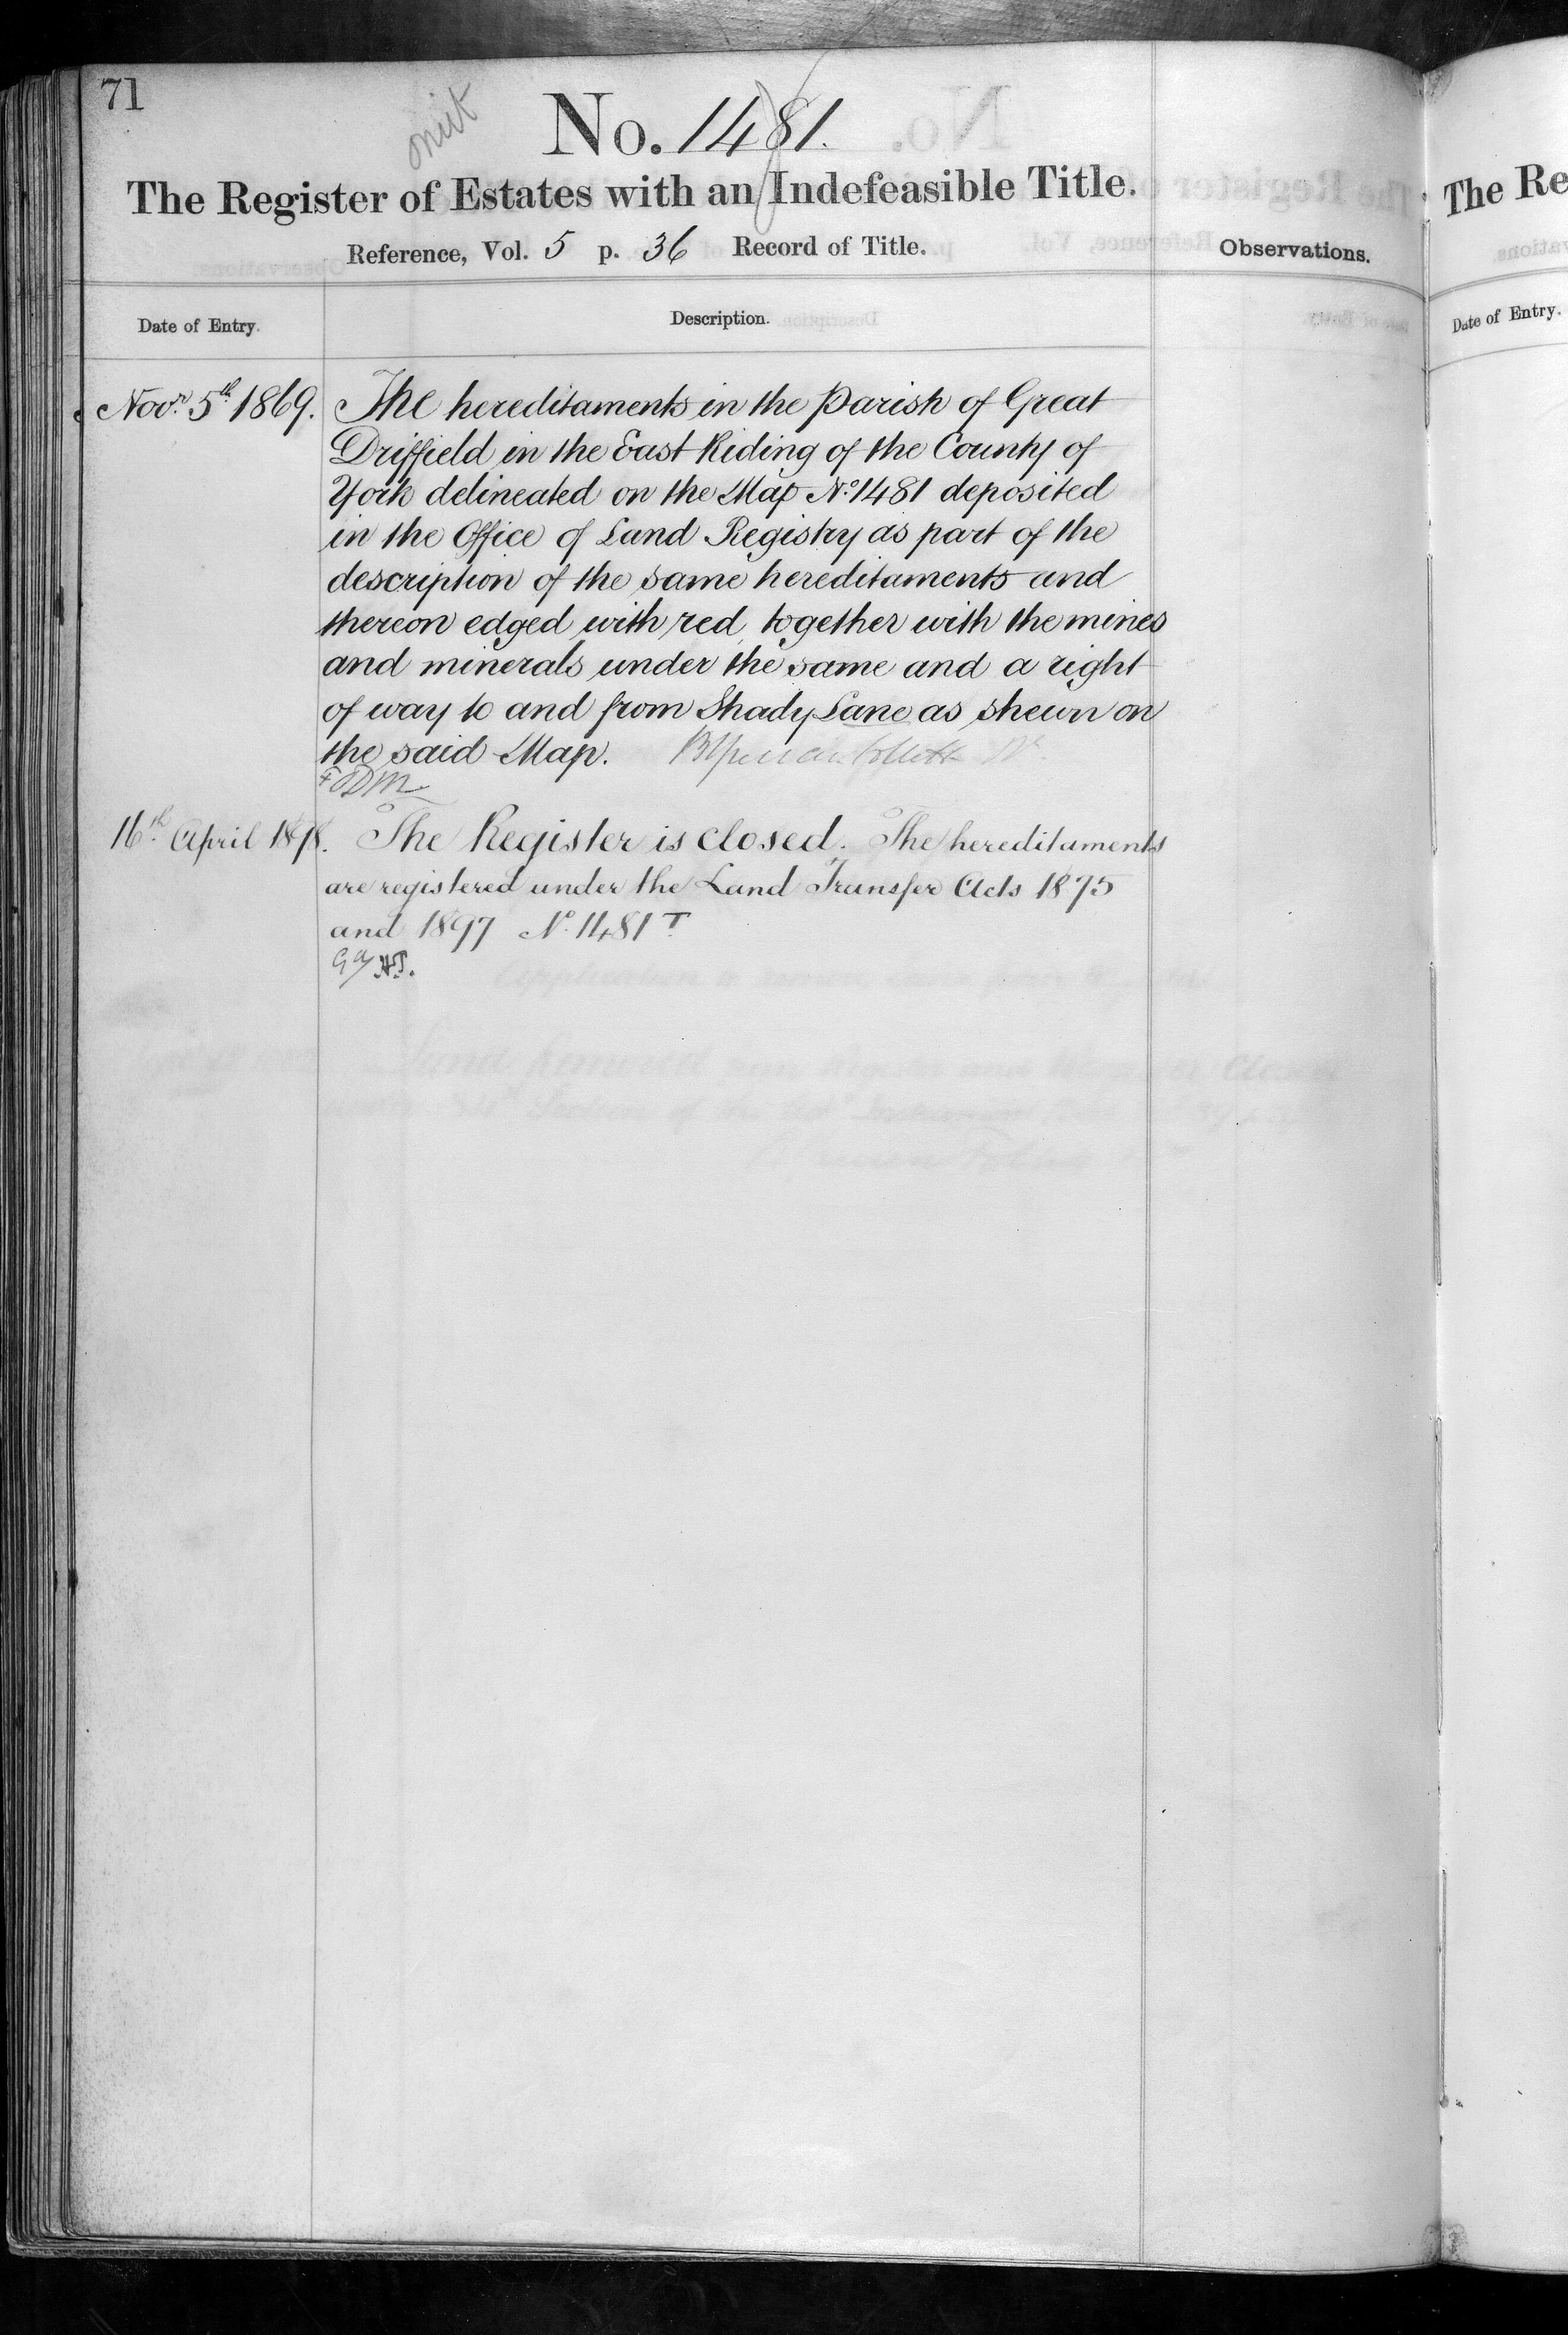 71
omit
No. 1481.
The Register of Estates with an Indefeasible Title.
Reference, Vol. 5 p. 36 Record of Title.
Observations.
Date of Entry.
Description.
Novr. 5th. 1869.
The hereditaments in the Parish of Great
Driffield in the East Riding of the County of
York delineated on the Map No. 1481 deposited
in the Office of Land Registry as part of the
description of the same hereditaments and
thereon edged with red, together with the mines
and minerals under the same and a right
of way to and from Shady Lane as shewn on
the said Map.
16th. April 1898.
The Register is closed. The hereditaments
are registered under the Land Transfer Acts 1875
and 1897 No. 1481 T
The Re
Date of Entry.